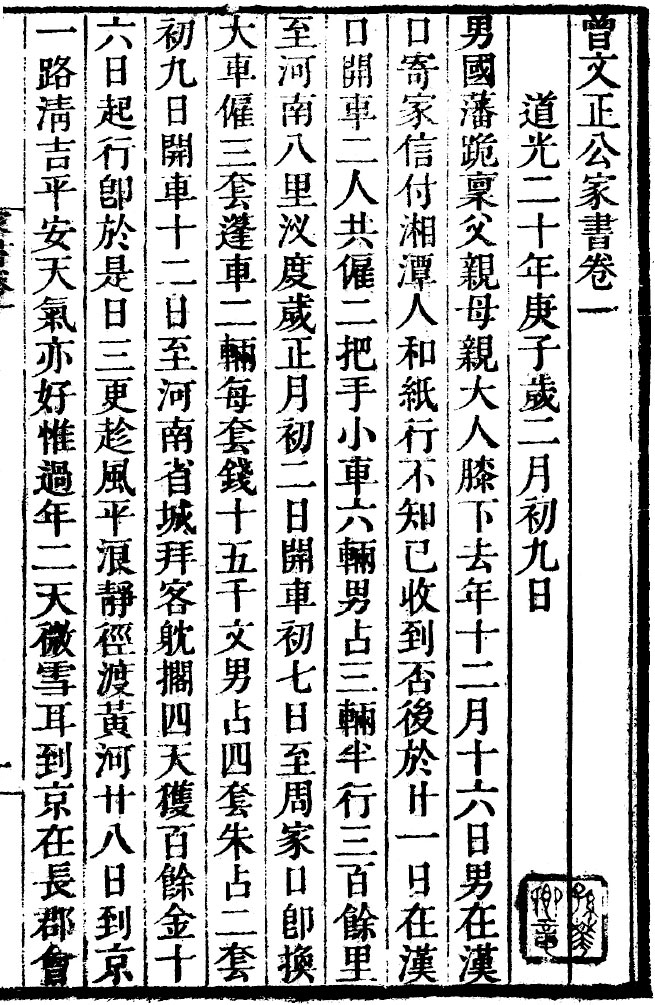 曾文正公家書卷一
道光二十年庚子歲二月初九日
男國藩跪稟父親母親大人膝下去年十二月十六日男在漢
口寄家信付湘潭人和紙行不知已收到否後於廿一日在漢
口開車二人共僱二把手小車六輛男占三輛半行三百餘里
至河南八里汊度歲正月初二日開車初七日至周家口卽換
大車僱三套篷車二輛每套錢十五千文男占四套朱占二套
初九日開車十二日至河南省城拜客躭擱四天獲百餘金十
六日起行卽於是日三更趁風平浪靜徑渡黃河廿八日到京
一路清吉平安天氣亦好惟過年二天微雪耳到京在長郡會